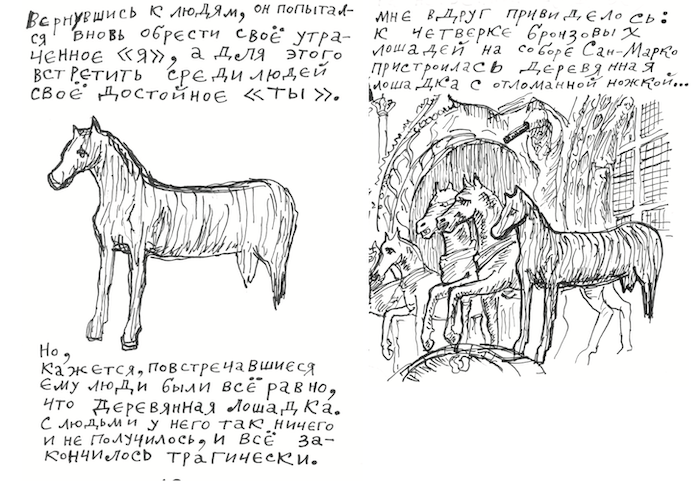 Вернувшись к людям, он попытал-
ся вновь обрести своё утра-
ченное «я», а для этого
встретить среди людей
своё достойное «ты».
Но,
кажется, повстречавшиеся
ему люди были всё равно,
что деревянная лошадка.
С людьми у него так ничего
и не получилось, и всё за-
кончилось трагически.
Мне вдруг привиделось:
к четверке бронзовых
лошадей на соборе Сан-Марко
пристроилась деревянная
лошадка с отломанной ножкой...